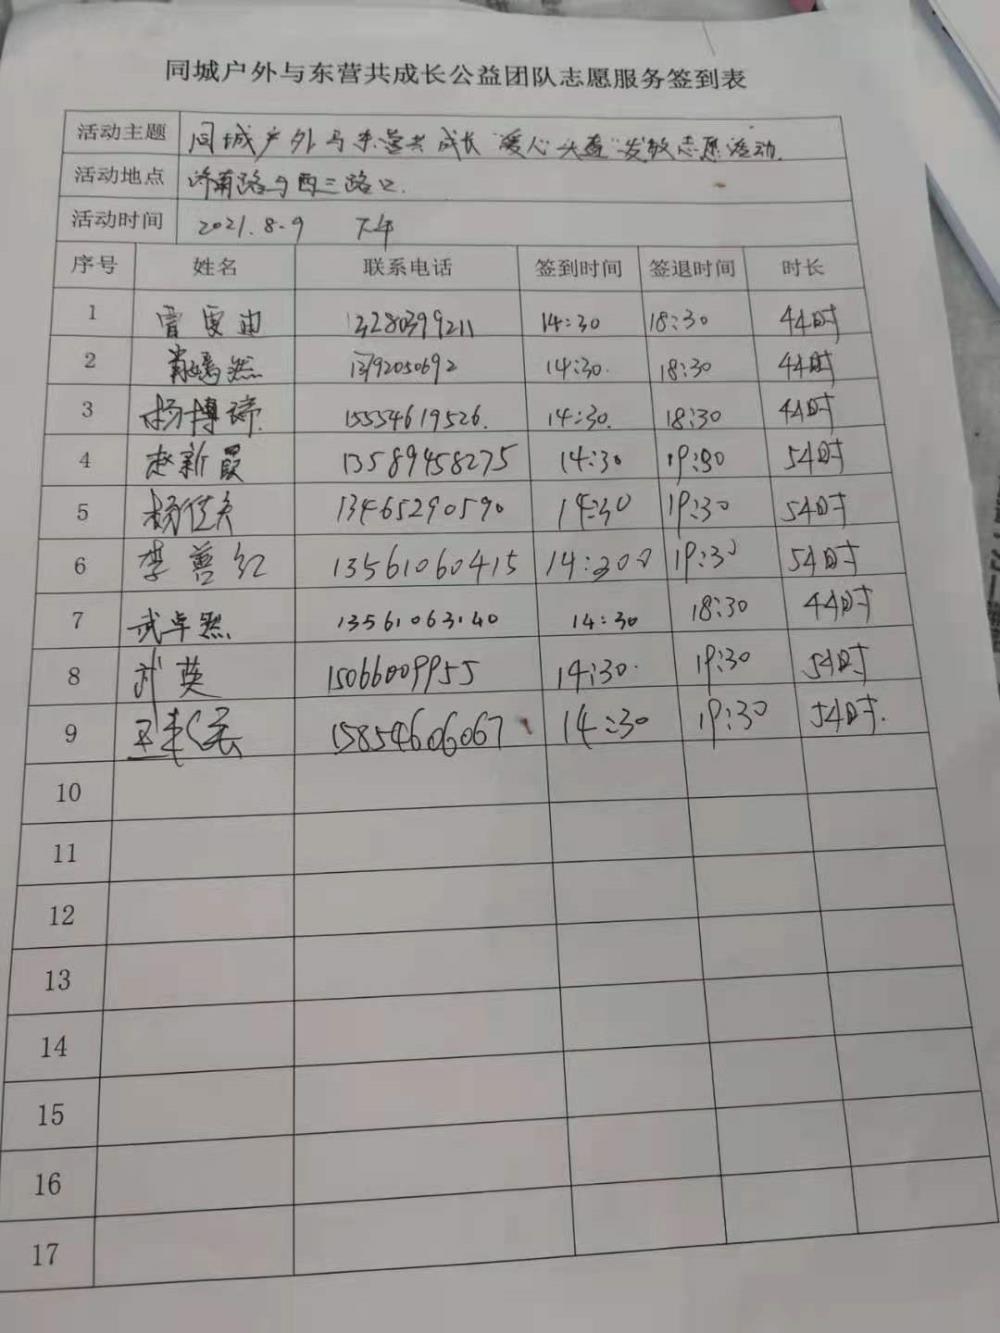 同城户外与东营共成长公益团队志愿服务签到表
活动主题 同城户外与东营共成长"爱心头盔"发放志愿活动.
活动地点 济南路与西三路口.
活动时间 2021.8.9 下午
序号 姓名 联系电话 签到时间 签退时间 时长
1 13280399211 14:30 18:30 4小时
2 13792050692 14:30. 18:30 4小时
3 杨博 15554619526. 14:30. 18:30 4小时
4 赵新霞 13589458275 14:30 19:30 5小时
5 杨 13465290590 14:30 19:30 5小时
6 李善红 13561060415 14:300 19:30 5小时
7 武卓然 13561063140 14:30 18:30 4小时
8 武英 15066009955 14:30. 19:30 5小时
9 15854606067 14:30 19:30 5小时.
10
11
12
13
14
15
16
17